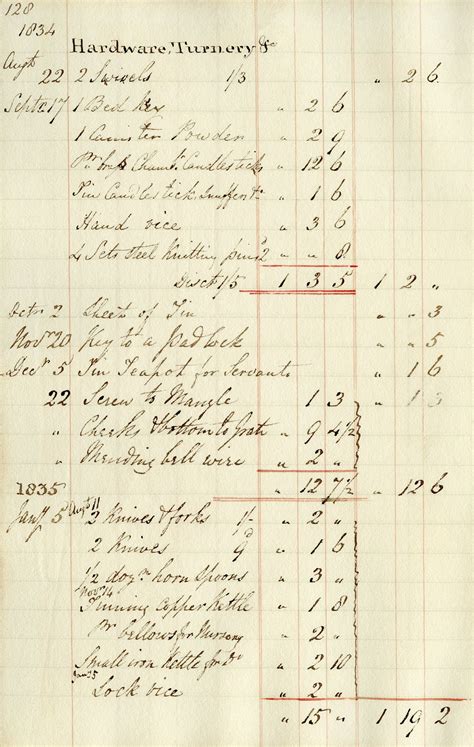 128
1834
Hardware, Turnery &c
Augt 22 2 Swivels 1/3 " 2 6
Septr 17 1 Bed Key " 2 6
1 Canister Powder " 2 9
Pr Chamr Candlesticks " 12 6
Tin Candlestick, Snuffers &c " 1 6
Hand vice " 3 6
4 Sets Steel Knitting pins 2d " " 8
Disct 1/5 1 3 5 1 2 "
Octr 2 Sheet of Tin " " 3
Novr 20 Key to a Padlock " " 5
Decr 5 Tin Teapot for Servants " 1 6
22 Screw to Mangle 1 3 " 1 3
" Cheeks & bottom to Grate " 9 4½
" Mending bell wire " 2 "
1835 " 12 7½ " 12 6
Augt 11
Jany 5 2 Knives & forks 1/- " 2 "
2 Knives 9d " 1 6
1/2 dozn horn Spoons " 3 "
Novr 14
Tinning Copper Kettle " 1 8
Pr bellows for Nursery " 2 "
Small iron Kettle for Do " 2 10
Lock vice " 2 "
" 15 " 1 19 2